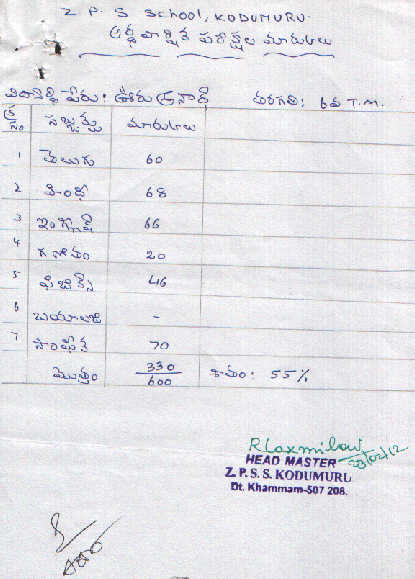 Z P S School, KODUMURU.
అర్థ వార్షిక పరీక్షల మారుకులు
విద్యార్థి పేరు: తరగతి: 6వ T.M.
క్ర సం సబ్జెక్టు మారుకులు
1 తెలుగు 60
2 హింది 68
3 ఇంగ్లీష్ 66
4 గణితం 20
5 ఫిజిక్స్ 46
6 బయాలజి -
7 సాంఘీక 70
మొత్తం 330/600 శాతం: 55%
R Laxmibai
HEAD MASTER 23/02/12
Z. P. S. S. KODUMURU
Dt. Khammam-507 208.